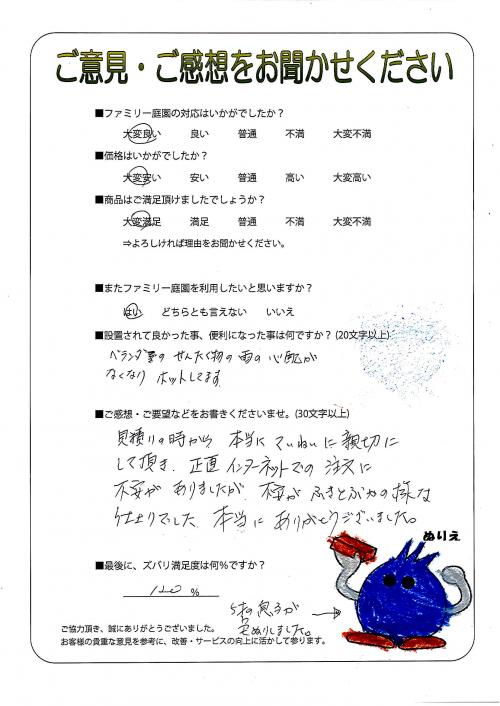 ご意見・ご感想をお聞かせください
■ファミリー庭園の対応はいかがでしたか？
大変良い 良い 普通 不満 大変不満
■価格はいかがでしたか？
大変安い 安い 普通 高い 大変高い
■商品はご満足頂けましたでしょうか？
大変満足 満足 普通 不満 大変不満
⇒よろしければ理由をお聞かせください。
■またファミリー庭園を利用したいと思いますか？
はい どちらとも言えない いいえ
■設置されて良かった事、便利になった事は何ですか？(20文字以上)
ベランダ の せんたく物の雨の心配が
なくなり ホットしてます
■ご感想・ご要望などをお書きくださいませ。(30文字以上)
見積りの時から 本当に ていねいに親切に
して頂き、正直 インターネットでの 注文に
不安が ありましたが 不安が ふきとぶかの様な
仕上りでした 本当に ありがとうございました。
ぬりえ
■最後に、ズバリ満足度は何％ですか？
120 %
5才の息子が
ぬりしました。
ご協力頂き、誠にありがとうございました。
お客様の貴重な意見を参考に、改善・サービスの向上に活かして参ります。